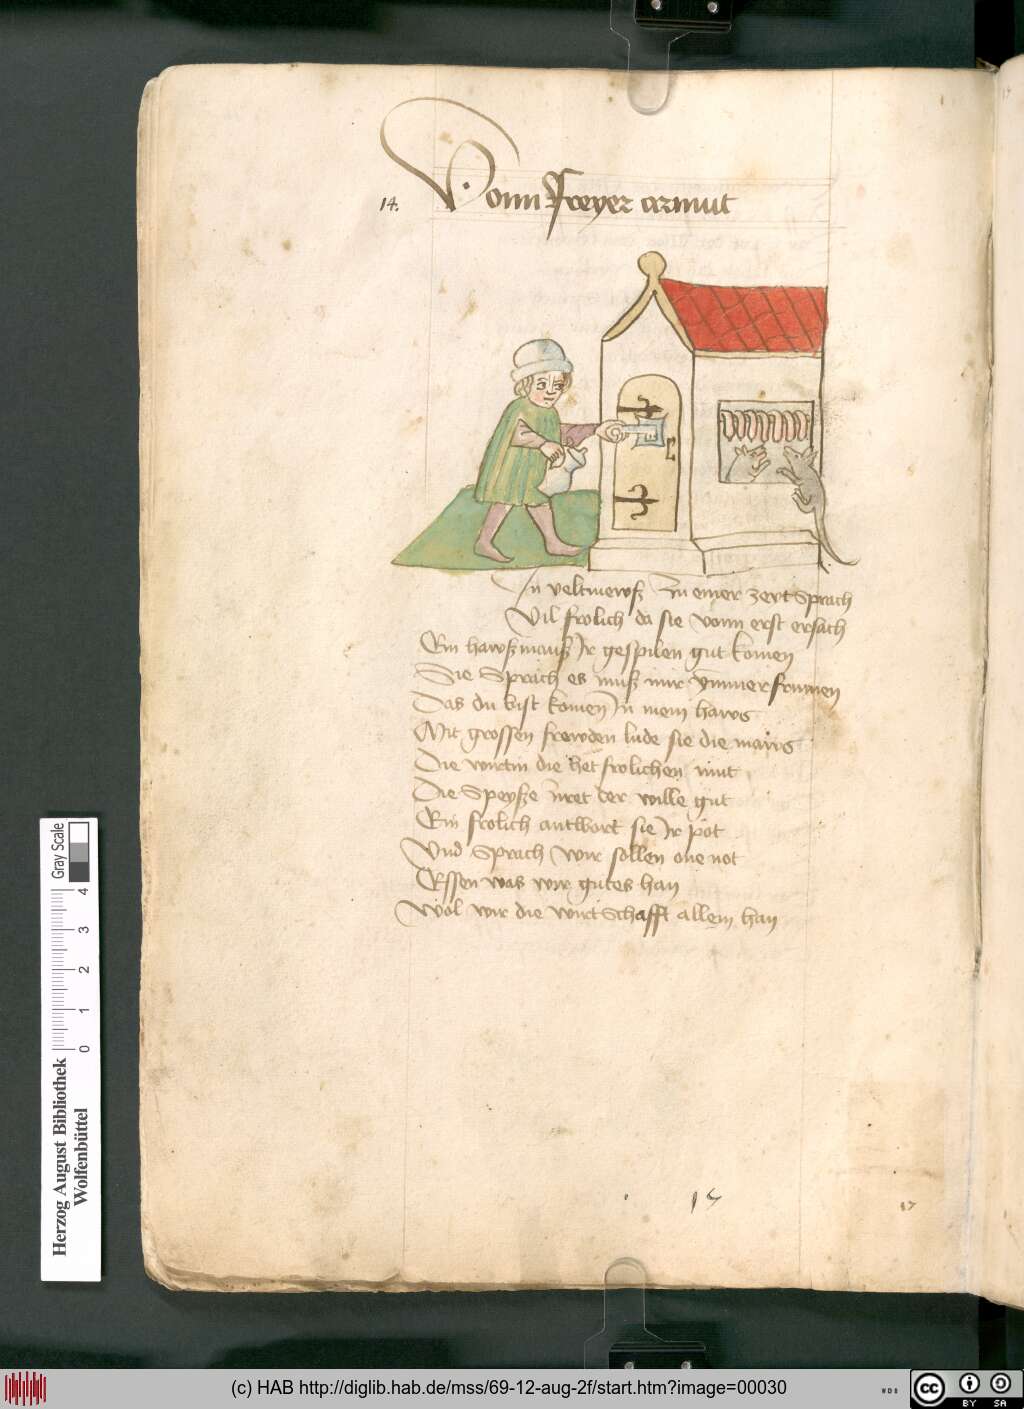 14.
Vonn Freyer armut
In veltmewß zu einer zeyt Sprach
Vil frolich da sie vonn erst ersach
Ein hawßmauß Ir gespilen gut komen
Sie Sprach es muß mir ymmer frumen
Das du bist komen In mein haws
Mit grossen frewden lude sie die maws
Die wirtin die het frolichen mut
Die Speyße neret der wille gut
Ein frolich antwort sie Ir pot
Vnd Sprach wir sollen one not
Essen was wir gutes han
Wol wir die wirtschafft allein han
15
17
Herzog August Bibliothek
Wolfenbüttel
0 1 2 3 4
Gray Scale
(c) HAB http://diglib.hab.de/mss/69-12-aug-2f/start.htm?image=00030
WDB
cc BY SA